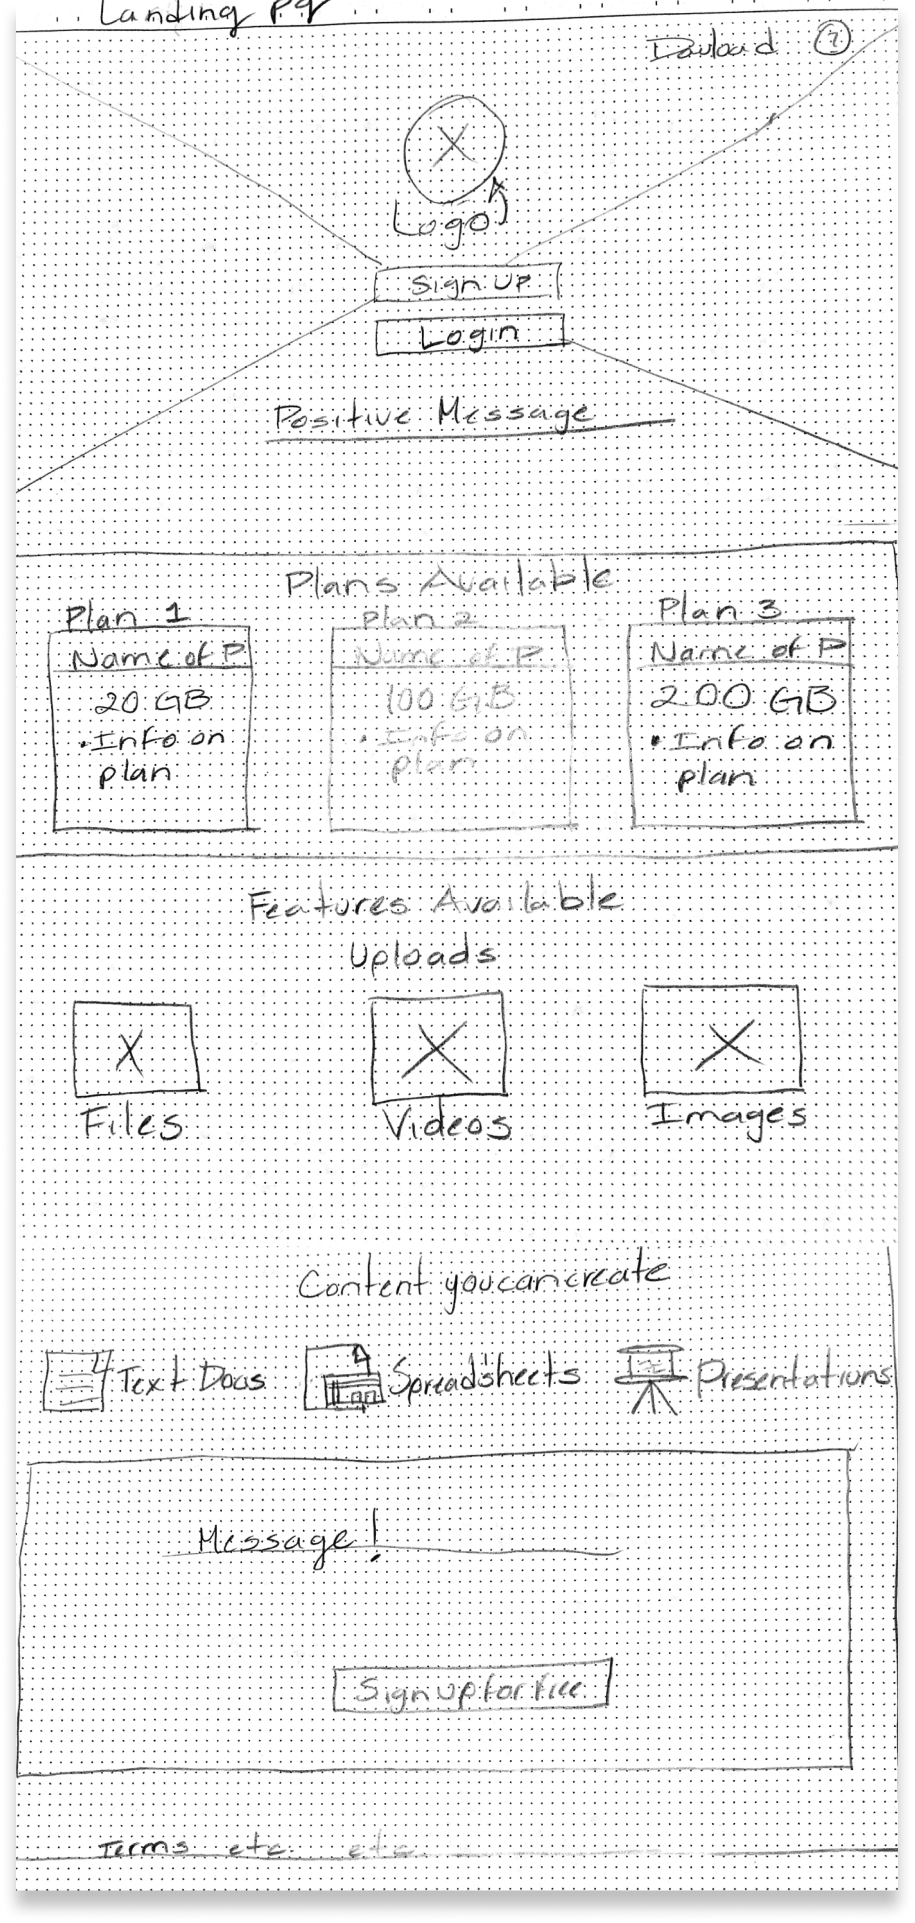 Landing pg
Download ?
Logo
Sign Up
Login
Positive Message
Plans Available
Plan 1 Plan 2 Plan 3
Name of P Name of P Name of P
20 GB 100 GB 200 GB
• Info on • Info on • Info on
plan plan plan
Features Available
Uploads
Files Videos Images
Content you can create
Text Docs Spreadsheets Presentations
Message!
Sign up for free
Terms etc. etc.